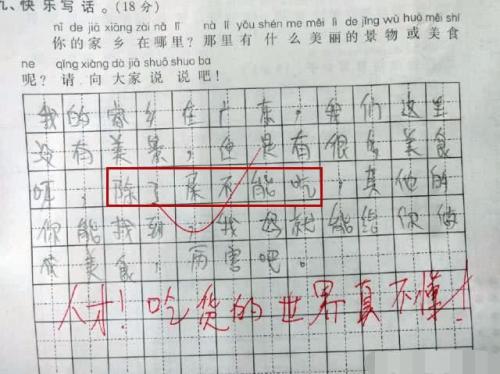 九、快乐写话。(18分)
nǐ de jiā xiāng zài nǎ lǐ nà lǐ yǒu shén me měi lì de jǐng wù huò měi shí
你的家乡在哪里？那里有什么美丽的景物或美食
ne qǐng xiàng dà jiā shuō shuo ba
呢？请向大家说说吧！
我的家乡在广东，我们这里
没有美景，但是有很多美食
哦，除了床不能吃，其他的
你能找到，我妈就能给你做
成美食，厉害吧。
人才！吃货的世界真不懂！